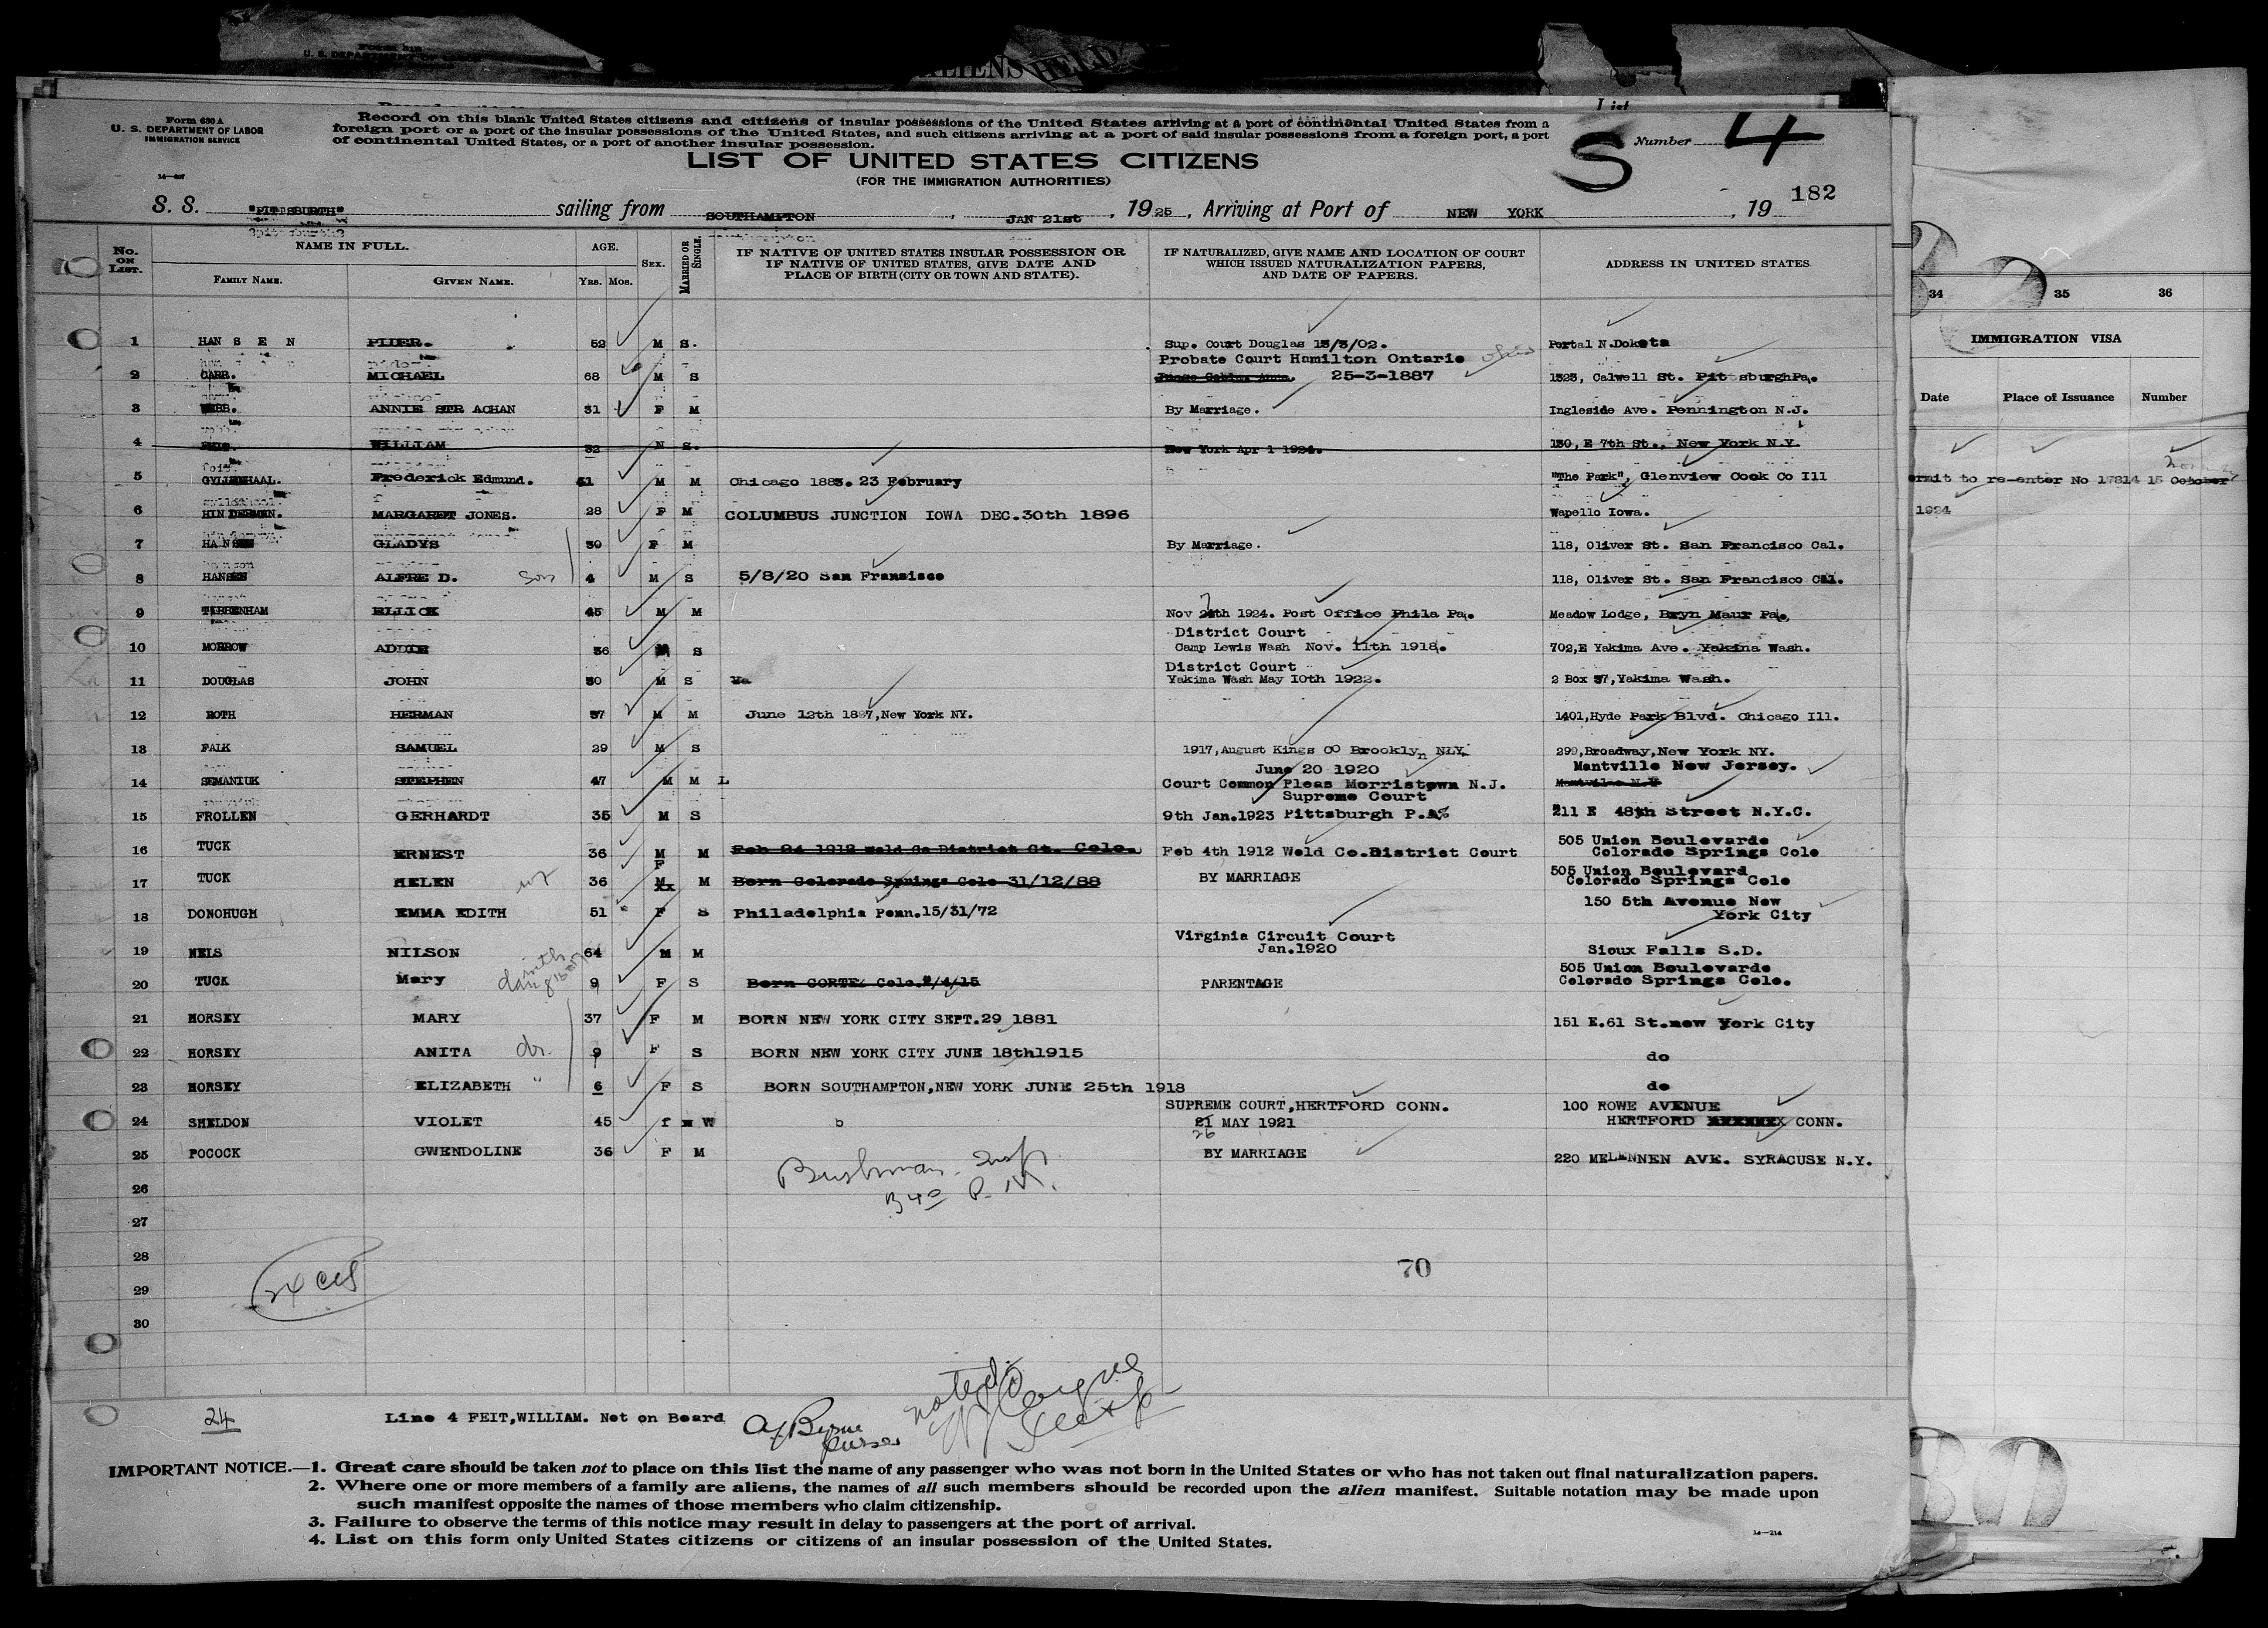 Form 630 A
U. S. DEPARTMENT OF LABOR
IMMIGRATION SERVICE
Record on this blank United States citizens and citizens of insular possessions of the United States arriving at a port of continental United States from a
foreign port or a port of the insular possessions of the United States, and such citizens arriving at a port of said insular possessions from a foreign port, a port
of continental United States, or a port of another insular possession.
LIST OF UNITED STATES CITIZENS
(FOR THE IMMIGRATION AUTHORITIES)
S Number 4
182
S. S. "PITTSBURTH" sailing from SOUTHAMPTON, JAN 21st, 1925, Arriving at Port of NEW YORK, 19
No. ON LIST. NAME IN FULL. AGE. SEX. MARRIED OR SINGLE. IF NATIVE OF UNITED STATES INSULAR POSSESSION OR IF NATIVE OF UNITED STATES, GIVE DATE AND PLACE OF BIRTH (CITY OR TOWN AND STATE). IF NATURALIZED, GIVE NAME AND LOCATION OF COURT WHICH ISSUED NATURALIZATION PAPERS, AND DATE OF PAPERS. ADDRESS IN UNITED STATES
FAMILY NAME. GIVEN NAME. YRS. MOS.
1 HAN S E N 52 M S. Sup. Court Douglas 13/3/02. Portal N.Dokota
Probate Court Hamilton Ontario
2 CARR. MICHAEL 68 M S 25-3-1887 1323, Calwell St. PittsburghPa.
3 WEBB. ANNIE STR ACHAN 31 F M By Marriage. Ingleside Ave. Pennington N.J.
4 WILLIAM 32 S. New York Apr 1 1924. 130, E 7th St., New York N.Y.
5 GYLLENHAAL. Frederick Edmund. 41 M M Chicago 1883. 23 February "The Park", Glenview Cook Co Ill
6 HINDERMAN. MARGARET JONES. 28 F M COLUMBUS JUNCTION IOWA DEC.30th 1896 Wapello Iowa.
7 HANSEN GLADYS 30 F M By Marriage. 118, Oliver St. San Francisco Cal.
8 HANSEN ALFRE D. son 4 M S 5/8/20 San Fransisco 118, Oliver St. San Francisco Cal.
9 TIBBENHAM ELLICK 45 M M Nov 24th 1924. Post Office Phila Pa. Meadow Lodge, Bryn Maur Pa.
District Court
10 MORROW ADDIE 36 M S Camp Lewis Wash Nov. 11th 1918. 702,E Yakima Ave. Yakina Wash.
District Court
11 DOUGLAS JOHN 30 M S Yakima Wash May 10th 1922. 2 Box 37, Yakima Wash.
12 ROTH HERMAN 37 M M June 12th 1887, New York NY. 1401,Hyde Park Blvd. Chicago Ill.
13 FALK SAMUEL 29 M S 1917,August Kings CO Brooklyn NLY. 299,Broadway,New York NY.
June 20 1920 Mantville New Jersey.
14 SEMANIUK STEPHEN 47 M M L Court Common Pleas Morristown N.J.
Supreme Court
15 FROLLEN GERHARDT 35 M S 9th Jan.1923 Pittsburgh P.A% 211 E 48th Street N.Y.C.
16 TUCK ERNEST 36 M M Feb 24 1912 Weld Co District Ct. Colo. Feb 4th 1912 Weld Co.District Court 505 Union Boulevarde Colorado Springs Colo
17 TUCK HELEN 36 F M Born Colorado Springs Colo 31/12/88 BY MARRIAGE 505 Union Boulevard Colorado Springs Colo
18 DONOHUGH EMMA EDITH 51 F S Philadelphia Penn.15/31/72 150 5th Avenue New York City
19 NELS NILSON 64 M M Virginia Circuit Court Jan.1920 Sioux Falls S.D.
20 TUCK Mary 9 F S PARENTAGE 505 Union Boulevarde Colorado Springs Colo.
21 HORSEY MARY 37 F M BORN NEW YORK CITY SEPT.29 1881 151 E.61 St.new York City
22 HORSEY ANITA dr. 9 F S BORN NEW YORK CITY JUNE 18th1915 do
23 HORSEY ELIZABETH " 6 F S BORN SOUTHAMPTON,NEW YORK JUNE 25th 1918 do
24 SHELDON VIOLET 45 f W SUPREME COURT,HERTFORD CONN. 21 MAY 1921 26 100 ROWE AVENUE HERTFORD CONN.
25 POCOCK GWENDOLINE 36 F M BY MARRIAGE 220 MELENNEN AVE. SYRACUSE N.Y.
Bushman Insp.
340 P. M.
26
27
28
29
30
70
24
Line 4 FEIT,WILLIAM. Not on Board
Byrne
Purser
noted
IMPORTANT NOTICE.—1. Great care should be taken not to place on this list the name of any passenger who was not born in the United States or who has not taken out final naturalization papers.
2. Where one or more members of a family are aliens, the names of all such members should be recorded upon the alien manifest. Suitable notation may be made upon
such manifest opposite the names of those members who claim citizenship.
3. Failure to observe the terms of this notice may result in delay to passengers at the port of arrival.
4. List on this form only United States citizens or citizens of an insular possession of the United States.
14—214
34 35 36
IMMIGRATION VISA
Date Place of Issuance Number
ermit to re-enter No 17814 15 October
1924
ALIENS HELD